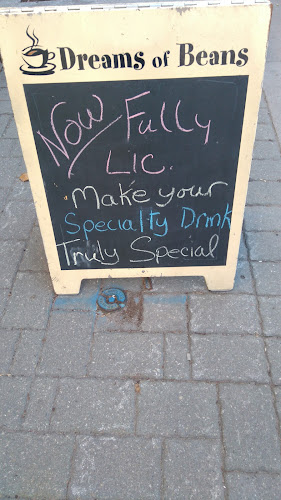 Dreams of Beans
Now Fully
Lic.
Make your
Specialty Drink
Truly Special